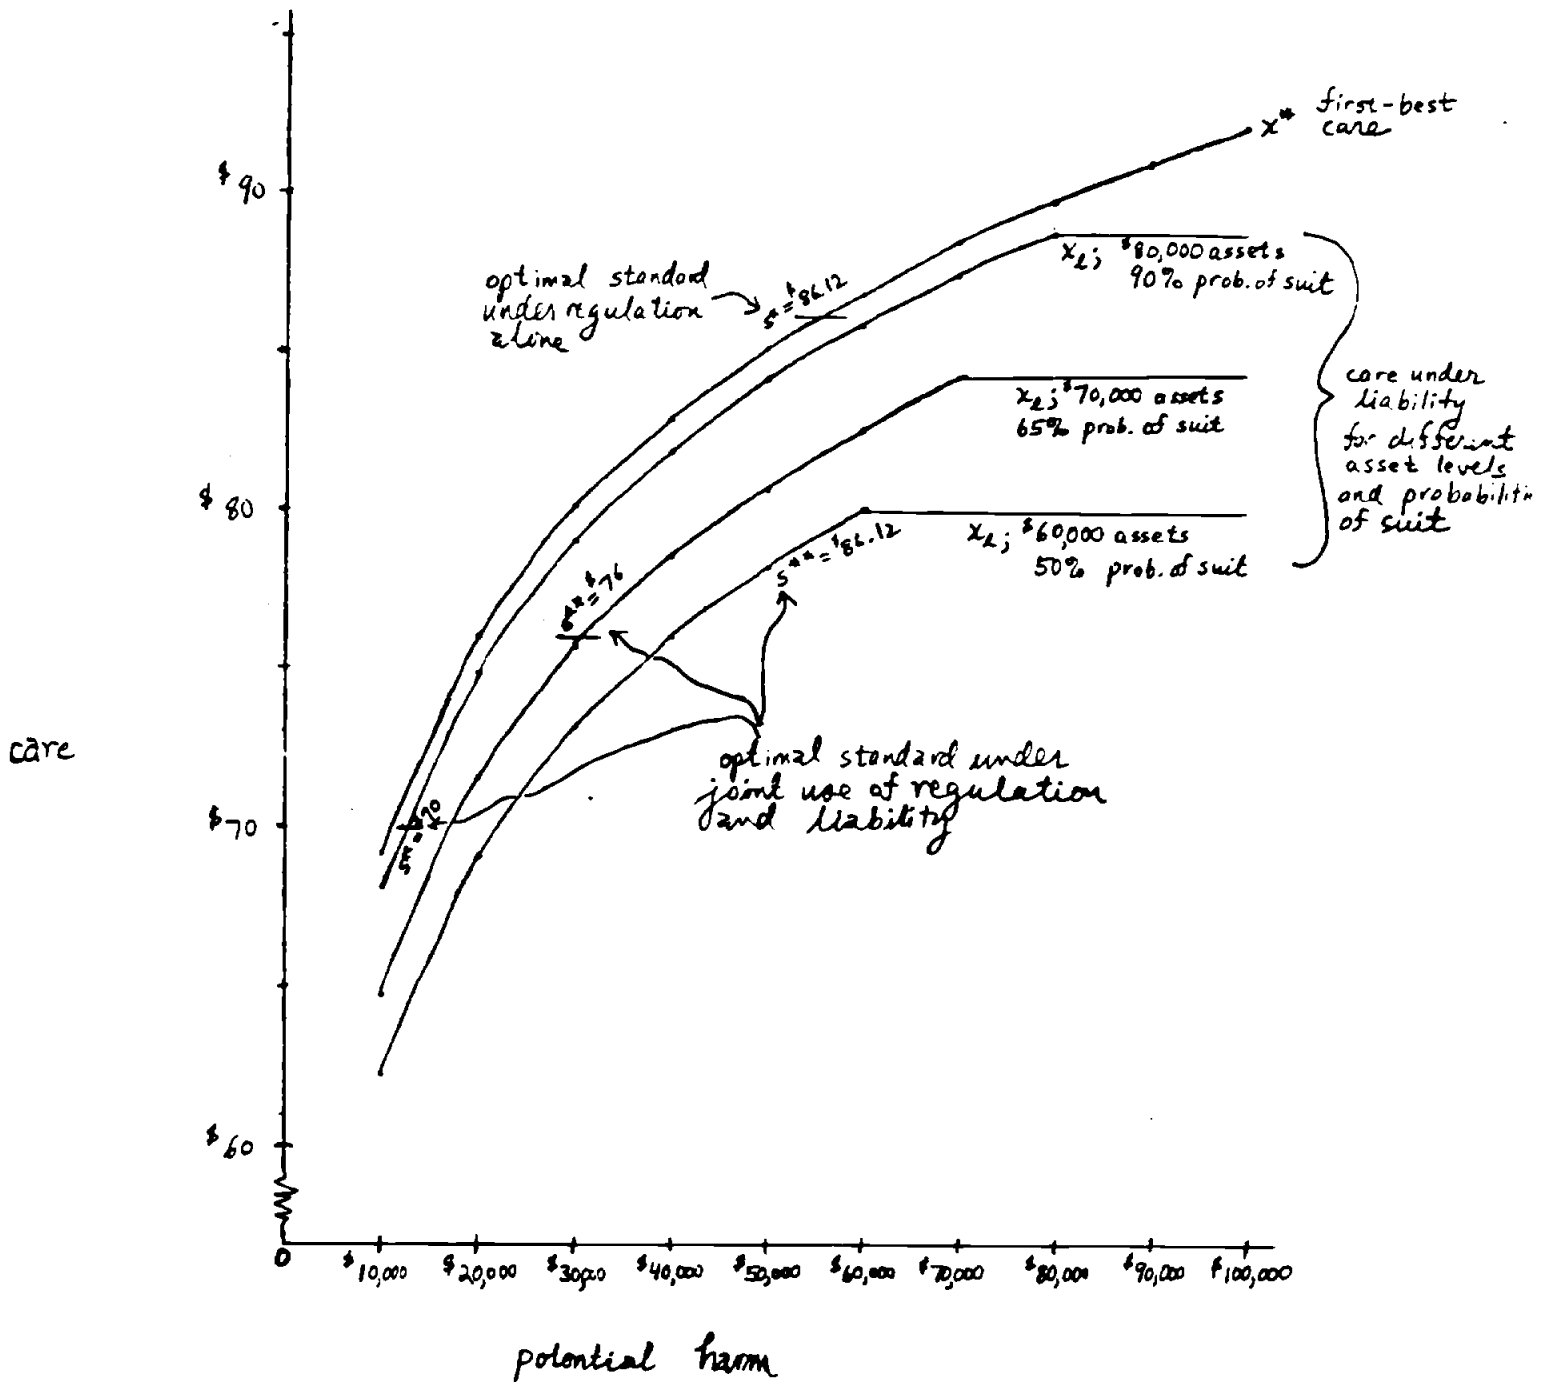 $90
$80
$70
$60
0
care
x* first-best
care
optimal standard
under regulation
alone
s* = $86.12
xℓ; $80,000 assets
90% prob. of suit
xℓ; $70,000 assets
65% prob. of suit
xℓ; $60,000 assets
50% prob. of suit
care under
liability
for different
asset levels
and probabilitie
of suit
s** = $76
s** = $86.12
s** = $70
optimal standard under
joint use of regulation
and liability
$10,000 $20,000 $30,000 $40,000 $50,000 $60,000 $70,000 $80,000 $90,000 $100,000
potential harm